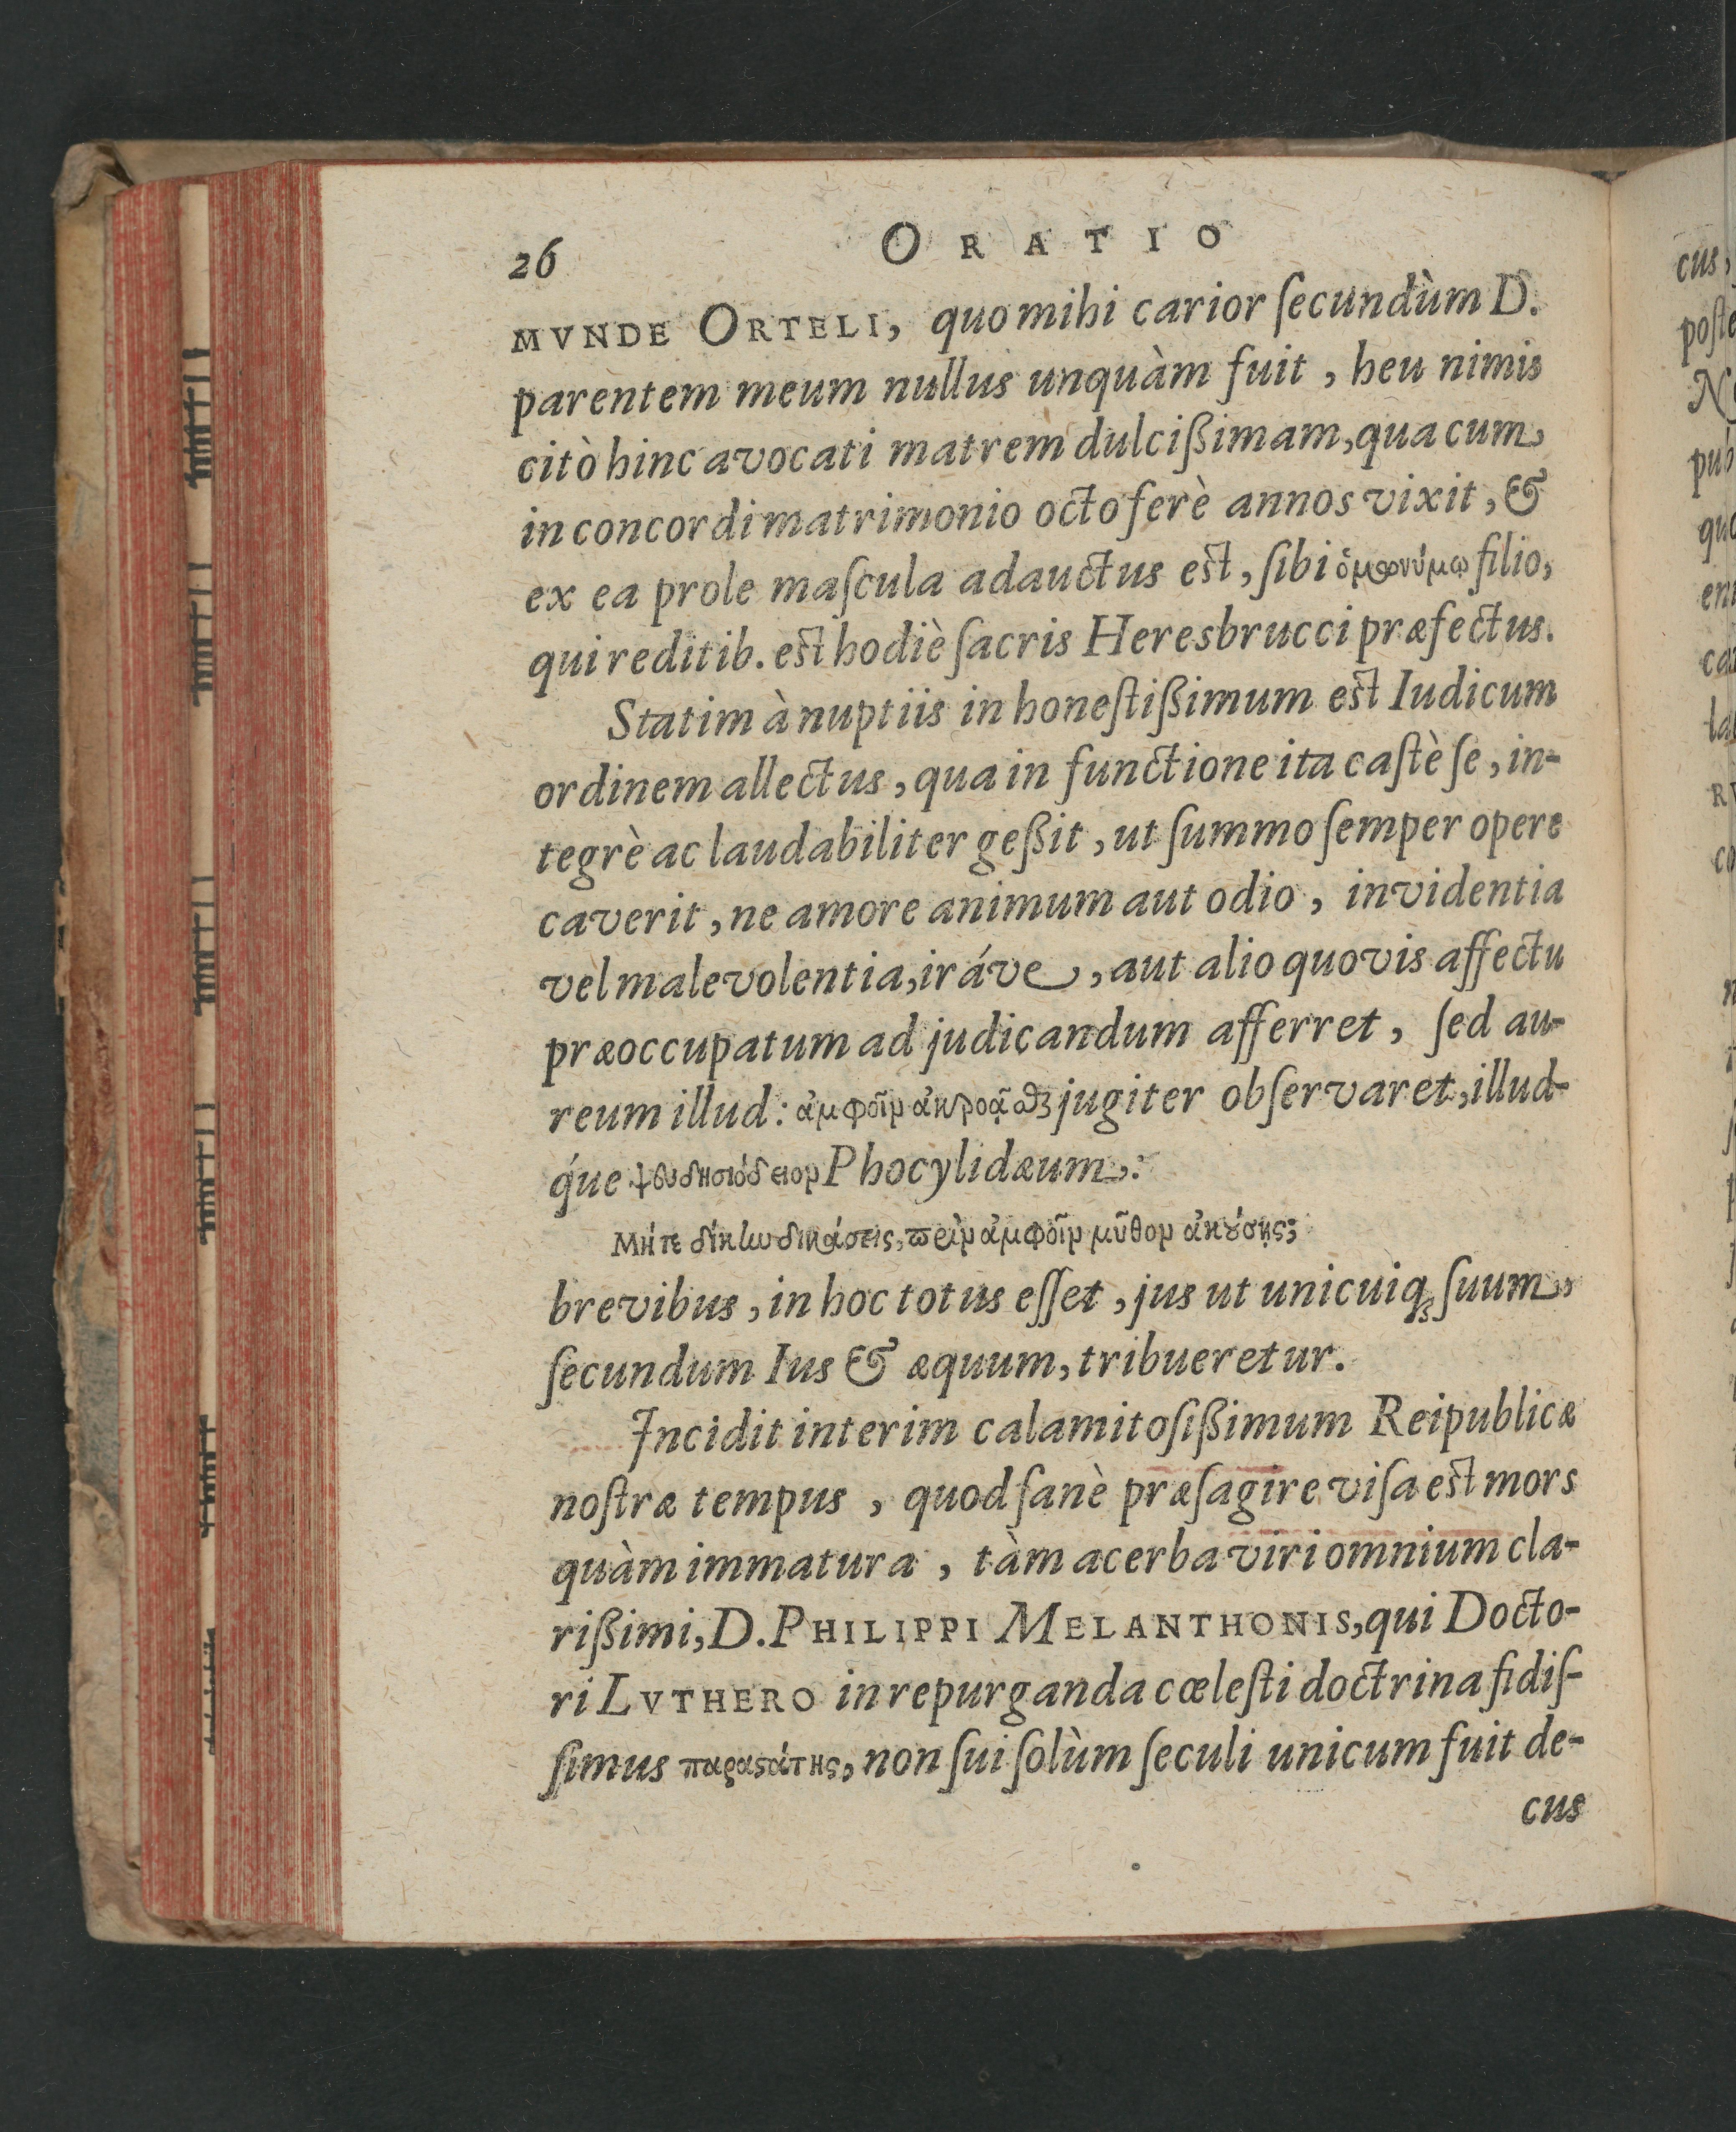 26 ORATIO
MVNDE ORTELI, quo mihi carior ſecundùm D.
parentem meum nullus unquàm fuit, heu nimis
citò hinc avocati matrem dulcißimam, qua cum
in concordi matrimonio octo ferè annos vixit, &
ex ea prole maſcula adauctus eſt, ſibi ὁμωνύμῳ filio,
qui reditib. eſt hodiè ſacris Heresbrucci præfectus.
Statim à nuptiis in honeſtißimum eſt Iudicum
ordinem allectus, qua in functione ita caſtè ſe, in-
tegrè ac laudabiliter geßit, ut ſummo ſemper opere
caverit, ne amore animum aut odio, invidentia
vel malevolentia, iráve, aut alio quovis affectu
præoccupatum ad judicandum afferret, ſed au-
reum illud: ἀμφοῖν ἀκροᾶσθαι jugiter obſervaret, illud-
q́ue ψευδησιόδειον Phocylidæum:
Μήτε δίκην δικάσεις, πρὶν ἀμφοῖν μῦθον ἀκούσῃς;
brevibus, in hoc totus eſſet, jus ut unicuiq; ſuum,
ſecundum Ius & æquum, tribueretur.
Incidit interim calamitoſißimum Reipublicæ
noſtræ tempus, quod ſanè præſagire viſa eſt mors
quàm immatura, tàm acerba viri omnium cla-
rißimi, D. PHILIPPI MELANTHONIS, qui Docto-
ri LVTHERO in repurganda cœleſti doctrina fidiſ-
ſimus παραστάτης, non ſui ſolùm ſeculi unicum fuit de-
cus
cus,
poſte
pub